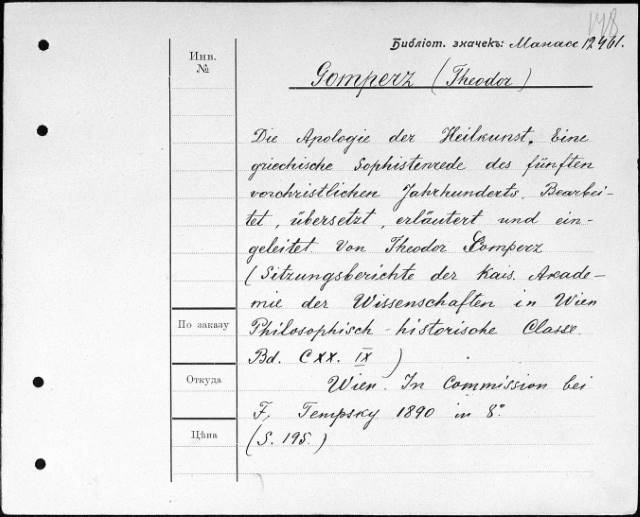 148
Библіот. значекъ: Манасс 12461.
Инв.
№
Gomperz (Theodor)
Die Apologie der Heilkunst. Eine
griechische Sophistenrede des fünften
vorchristlichen Jahrhunderts. Bearbei-
tet, übersetzt, erläutert und ein-
geleitet. Von Theodor Gomperz
(Sitzungsberichte der Kais. Akade-
mie der Wissenschaften in Wien
По заказу
Philosophisch-historische Classe.
Bd. CXX. IX)
Откуда
Wien. In Commission bei
F. Tempsky 1890 in 8°
Цѣна
(S. 195.)